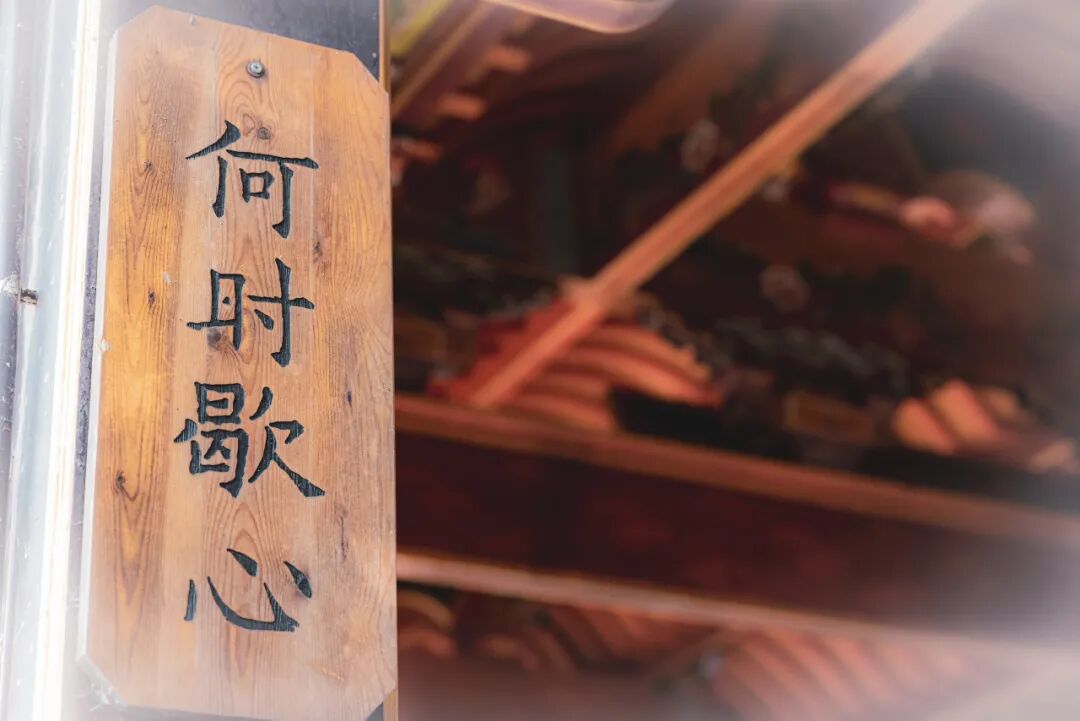 何时歇心